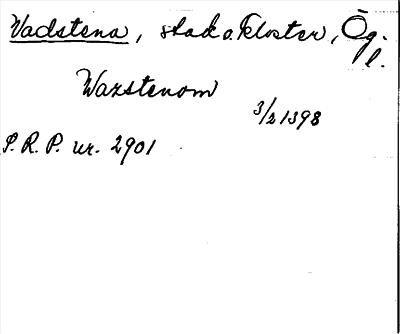 Vadstena, stad o. kloster, Ög.
l.
Wazstenom
3/2 1398
S. R. P. nr. 2901